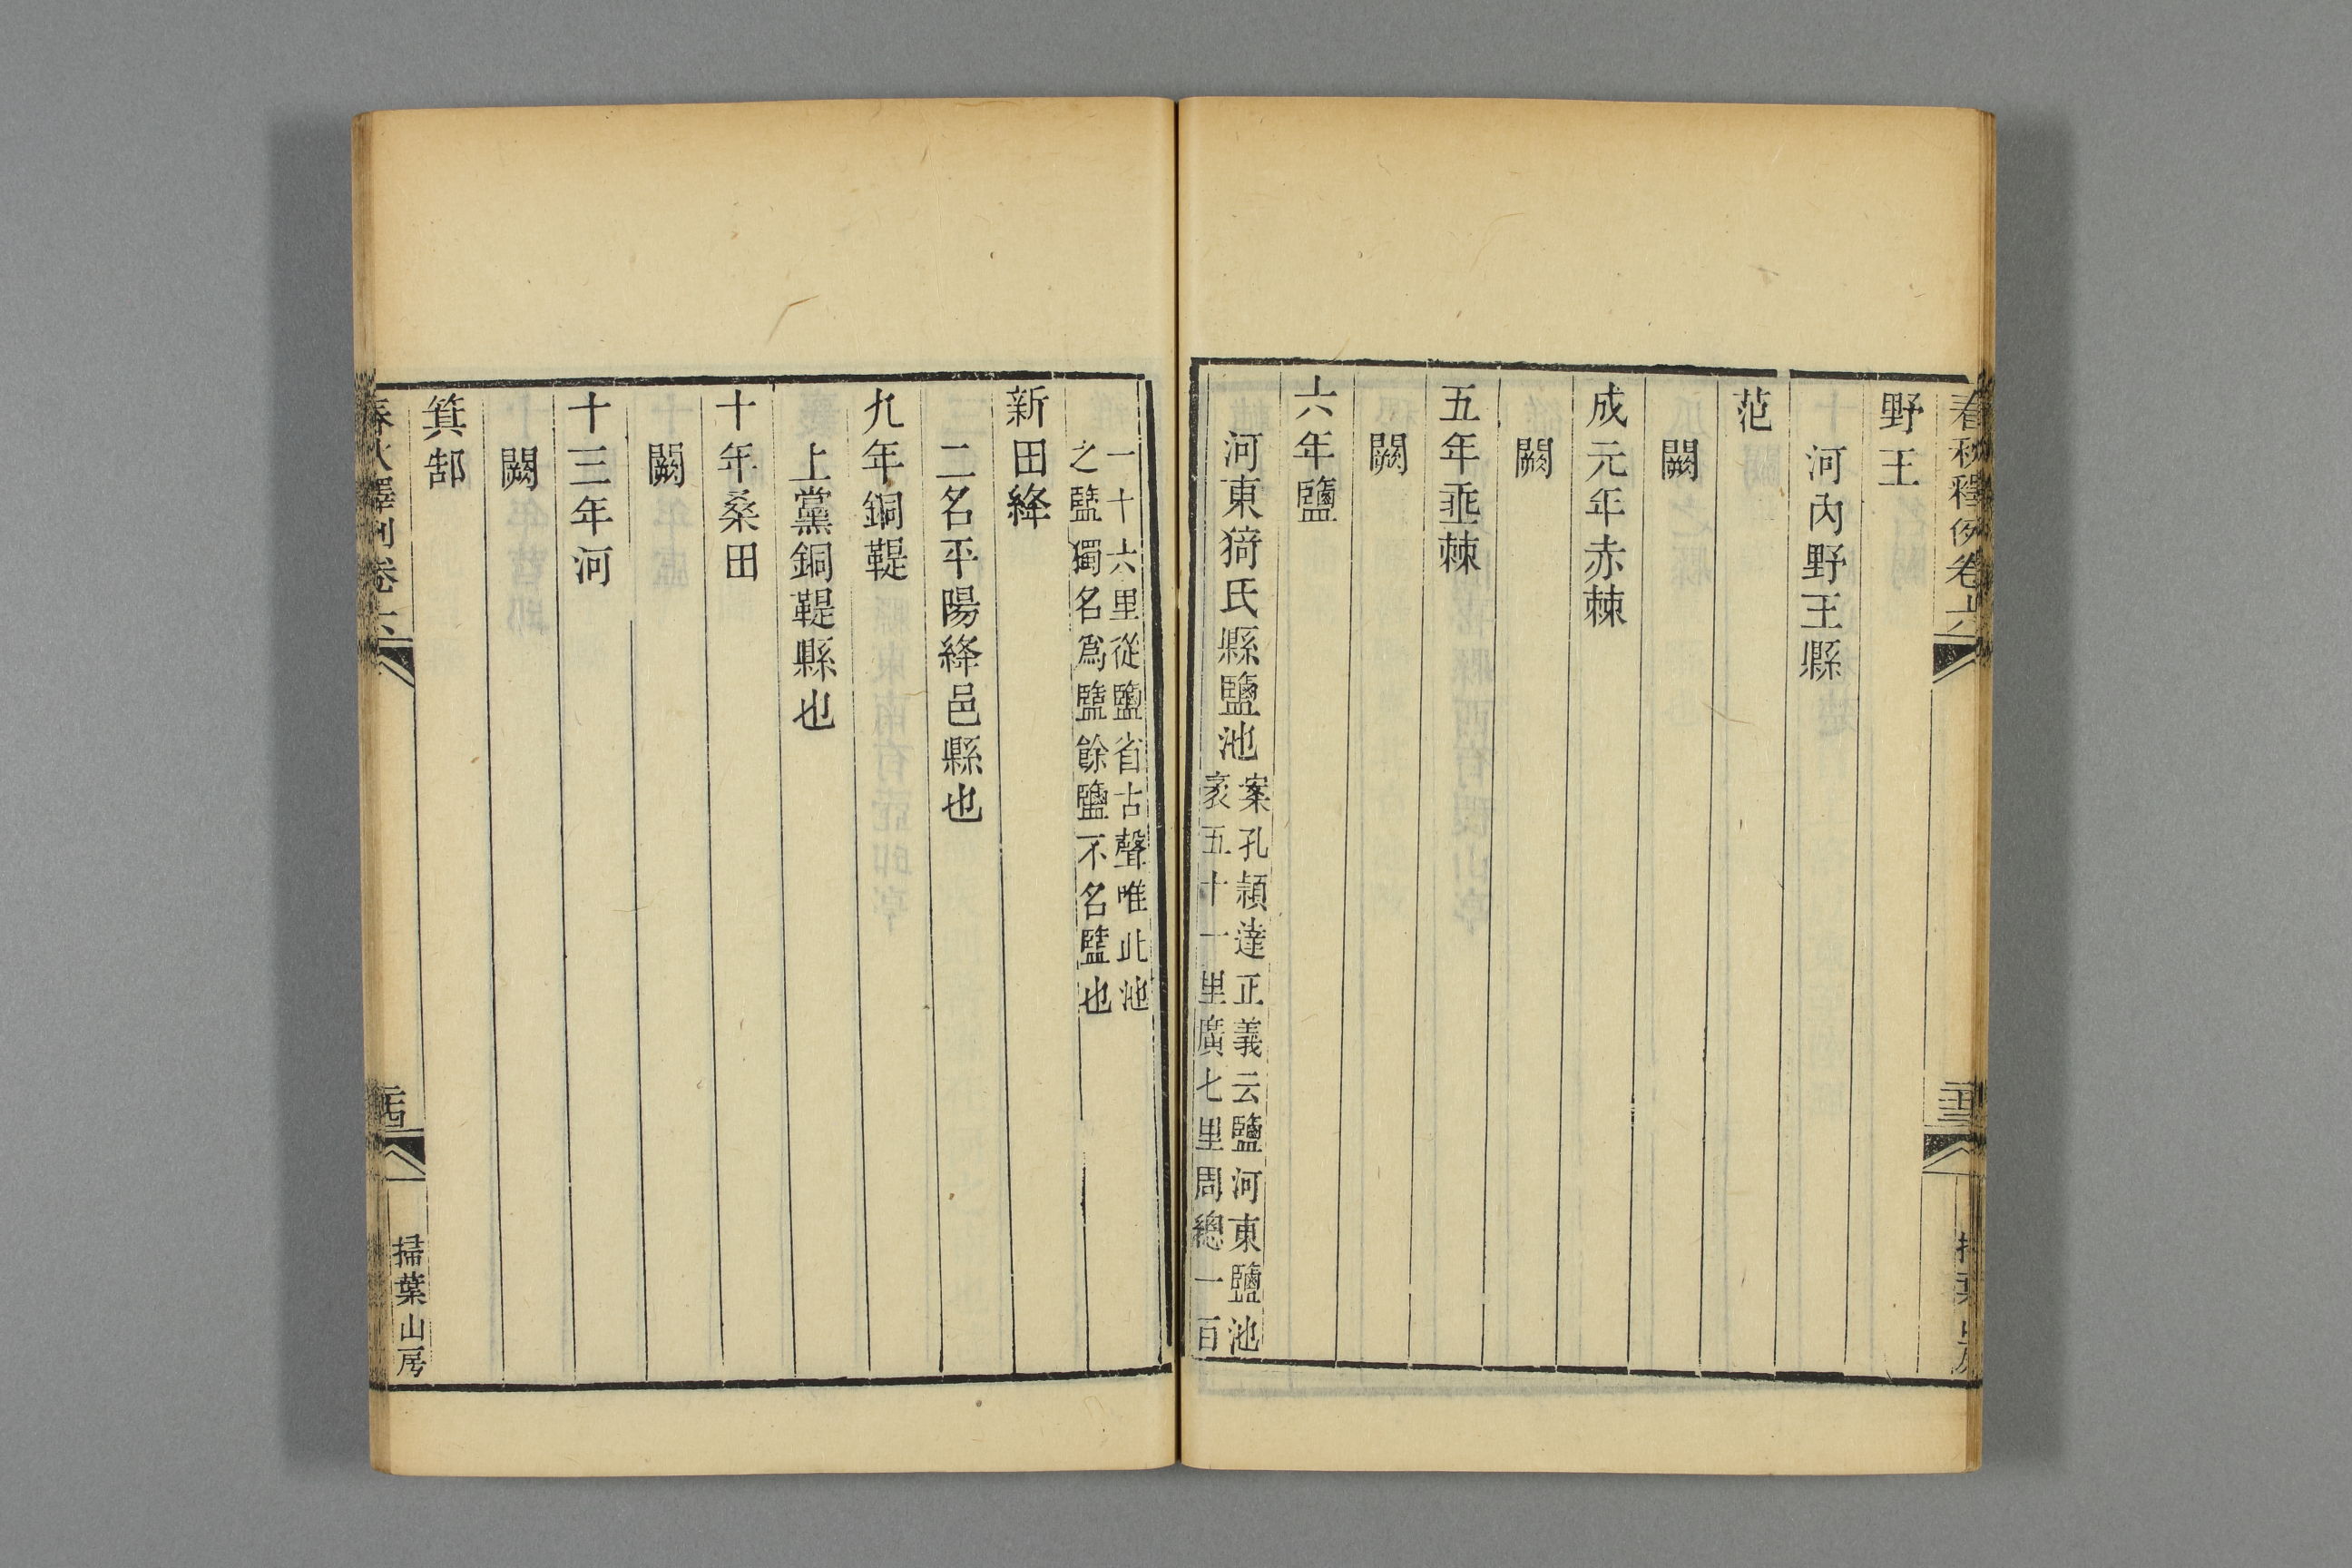 春秋釋例卷六
二十三
野王
河內野王縣
范
闕
成元年赤棘
闕
五年垂棘
闕
六年鹽
河東猗氏縣鹽池案孔穎達正義云鹽河東鹽池
袤五十一里廣七里周總一百
一十六里從鹽省古聲唯此池
之盬獨名爲盬餘鹽不名盬也
新田絳
二名平陽絳邑縣也
九年銅鞮
上黨銅鞮縣也
十年桑田
闕
十三年河
闕
箕郜
春秋釋例卷六
二十四
掃葉山房